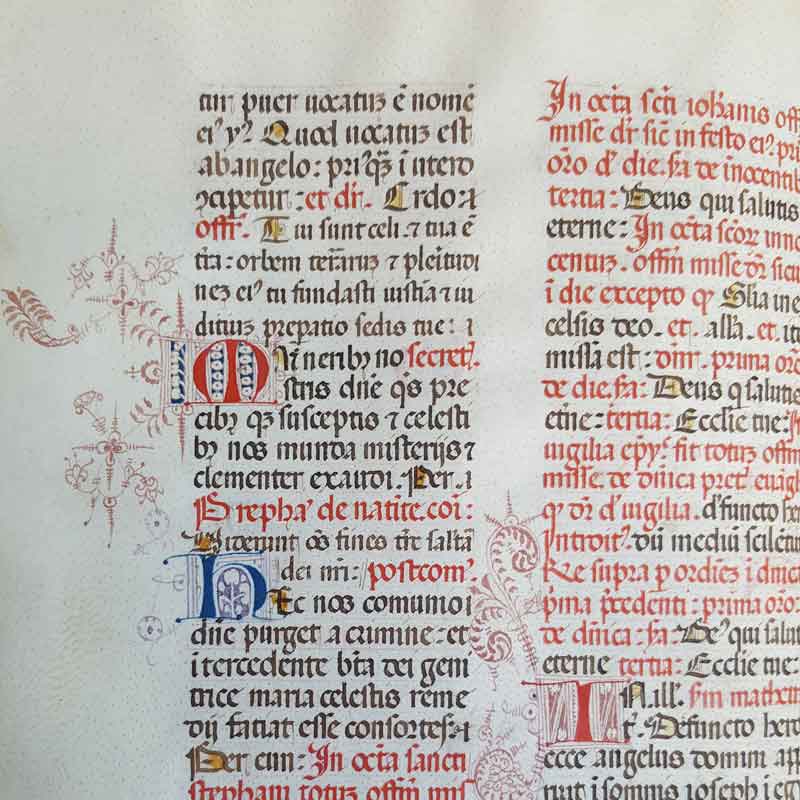 tur puer uocatuȝ ē nomē
ei⁹ yꝰ Quod uocatuȝ est
ab angelo: pri⁹qȝ ī utero
ꝯcipetur: et dr̄. Crdo:
offr̄. Tui sunt celi ⁊ tua ē
tr̄a: orbem terraruȝ ⁊ plenitudi
neȝ ei⁹ tu fundasti iustitia ⁊ iu
dituȝ preparatio sedis tue:
Muneribȝ no secret̄.
stris dn̄e q̄s pre
cibȝ qȝ susceptis ⁊ celesti
bȝ nos munda misterijs ⁊
clementer exaudi. Per.
Prephaº de natite. coi:
Uiderunt oēs fines tr̄e saltā
dei nr̄i: postcomº.
Hec nos comunio
dn̄e purget a crimine: et
itercedente bt̄a dei geni
trice maria celestis reme
dij faciat esse consortes.
Per eun: In octa sancti
stephani totuȝ offm̄ mis
In octa scti iohanis off
misse dr̄ sic̄ in festo ei⁹ pri
oro d' die. sa de inocentib
tertia: Deus qui salutis
eterne: In octa scōꝝ inno
centuȝ. offm̄ misse dr̄ sicu
ī die excepto qꝫ Glia in e
celsis deo. et. all'a. et. ite
missa est: dnr̄. prima oro
de die. sa: Deus q salutis
etne: tertia: Ecclie tue:
uigilia epy⁹. fit totuȝ offm̄
misse. de dn̄ica pret̄. euāgl
qꝫ dr̄ d' uigilia. defuncto her
Introit⁹. dū mediū silētiu
Re supra p ordīeȝ ī dnica
pͥma p̄cedenti: prima oro:
de dn̄ica: sa: De⁹ qui salut
eterne tertia: Ecclie tue:
In ill'. sm̄ matheu
t̄. Defuncto hero
ecce angelus domini app
ruit ī somnis ioseph ī egy